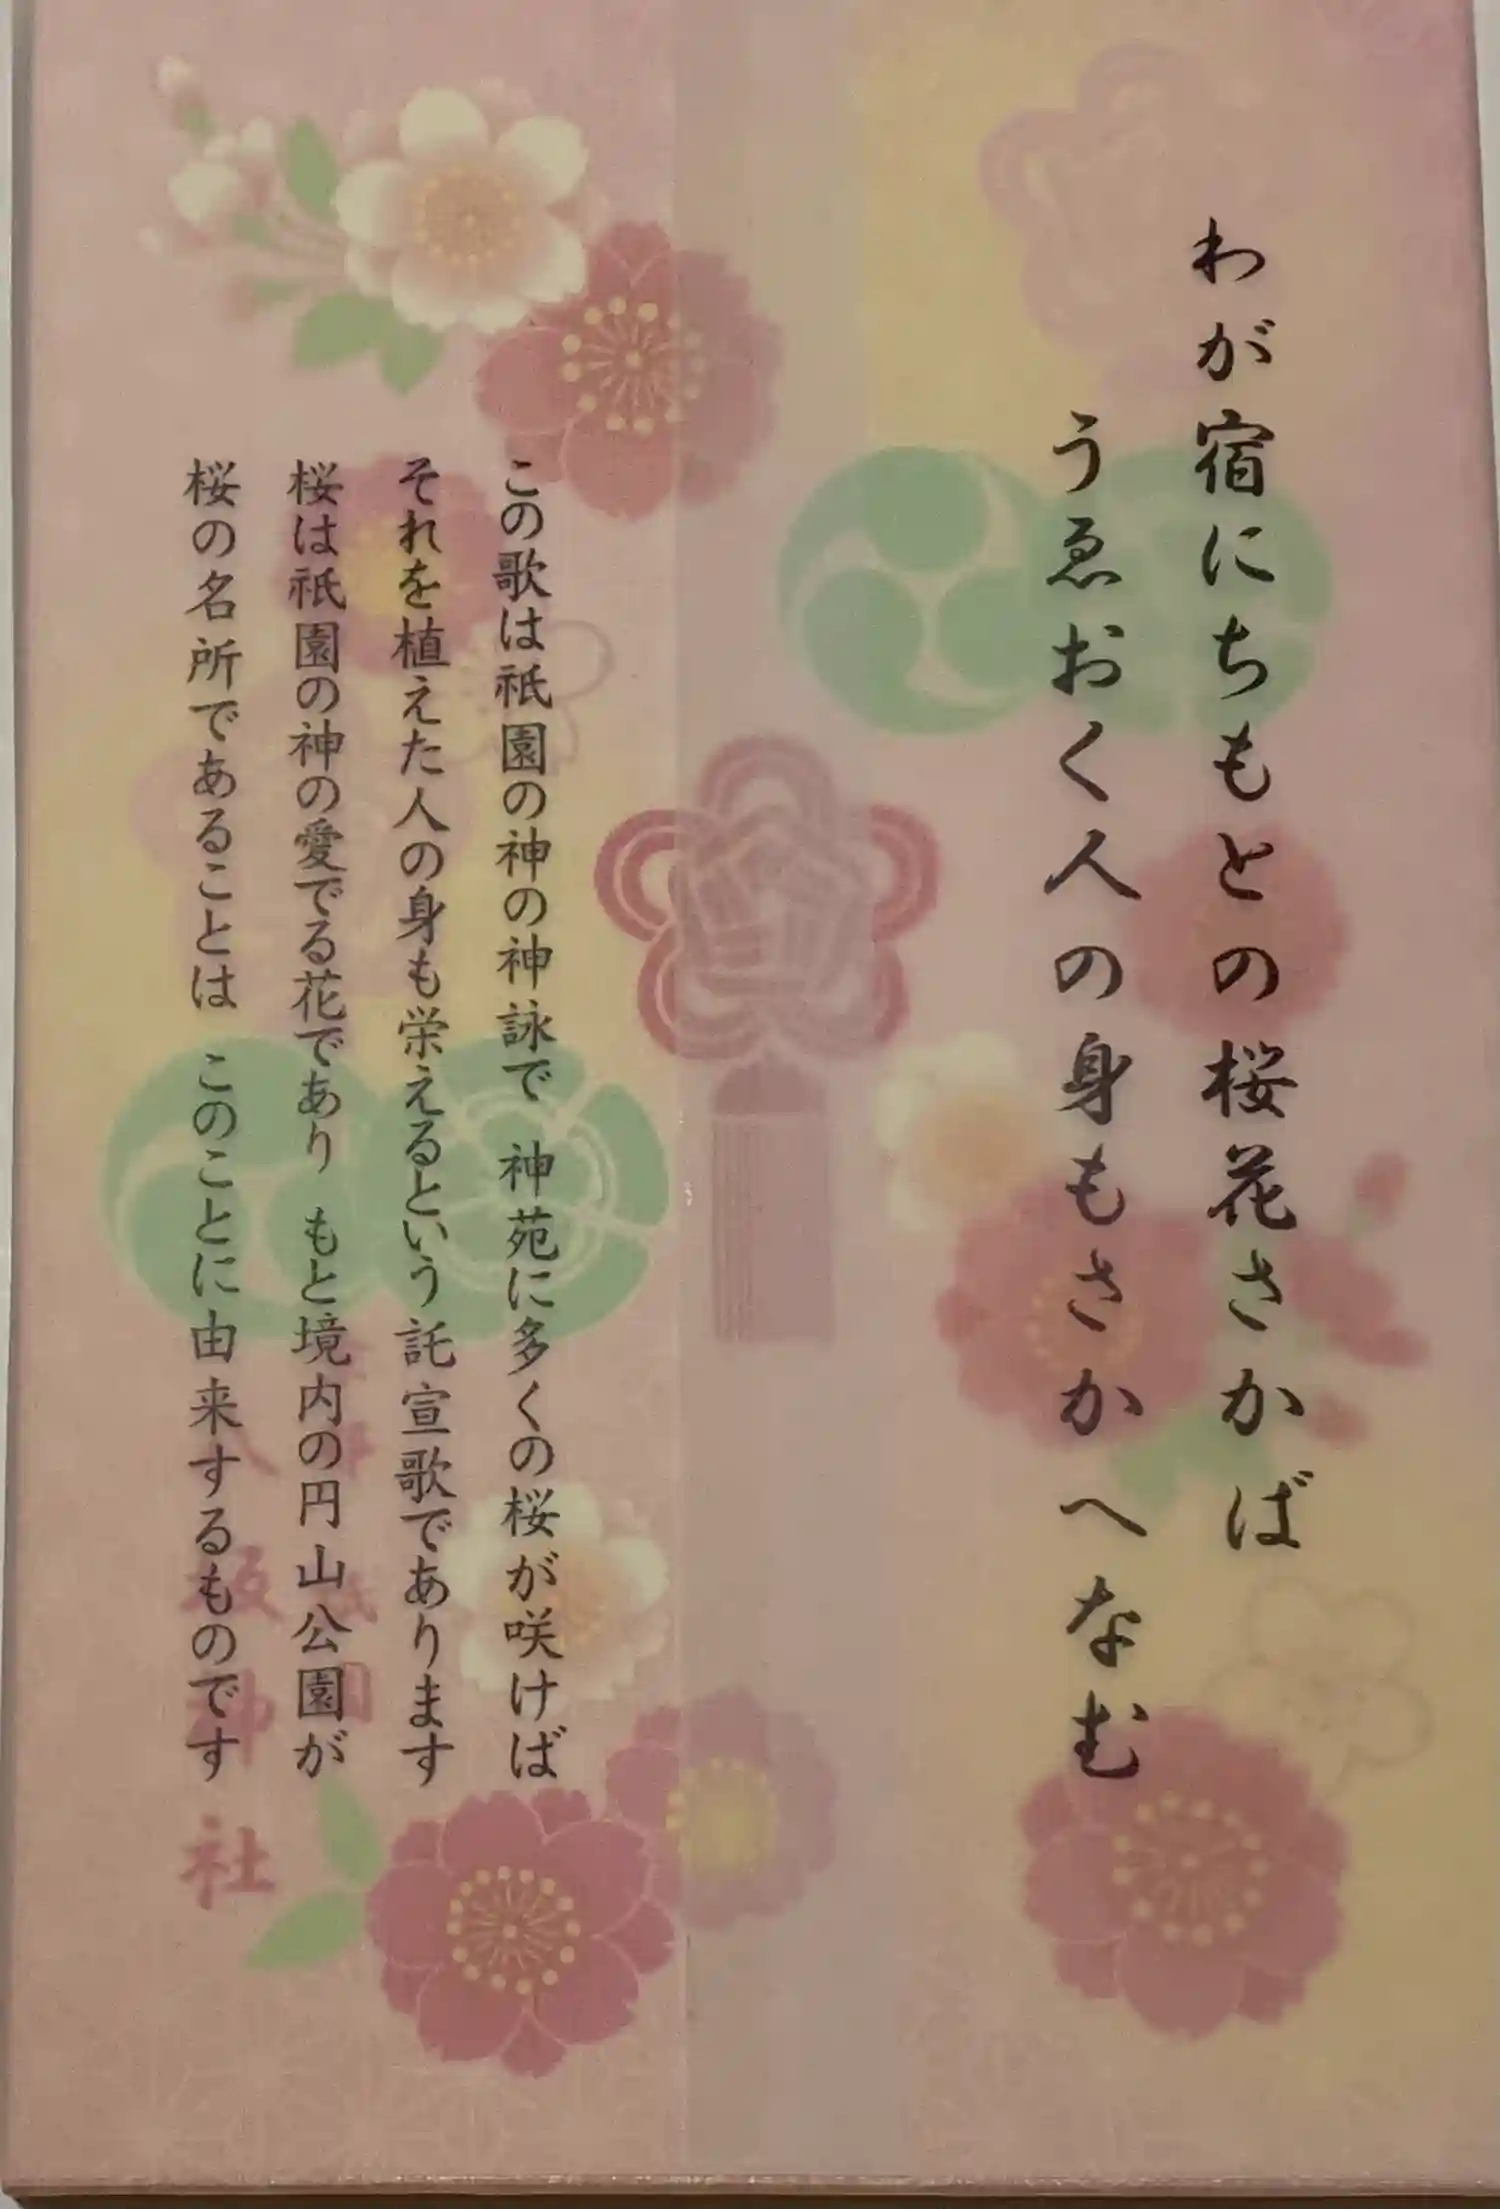 わが宿にちもとの桜花さかば
うゑおく人の身もさかへなむ
この歌は祇園の神の神詠で　神苑に多くの桜が咲けば
それを植えた人の身も栄えるという託宣歌であります
桜は祇園の神の愛でる花であり　もと境内の円山公園が
桜の名所であることは　このことに由来するものです
社